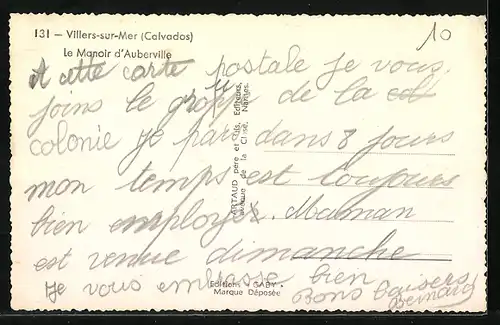 131 — Villers-sur-Mer (Calvados)
Le Manoir d'Auberville
10
A cette carte postale je vous
joins le groupe de la col
colonie je pars dans 8 jours
mon temps est toujours
bien employer. Maman
est venue dimanche
Je vous embrasse bien
Bons baisers
Bernard
ARTAUD père et fils, Éditeurs,
avenue de la Close, Nantes.
Editions "GABY"
Marque Déposée